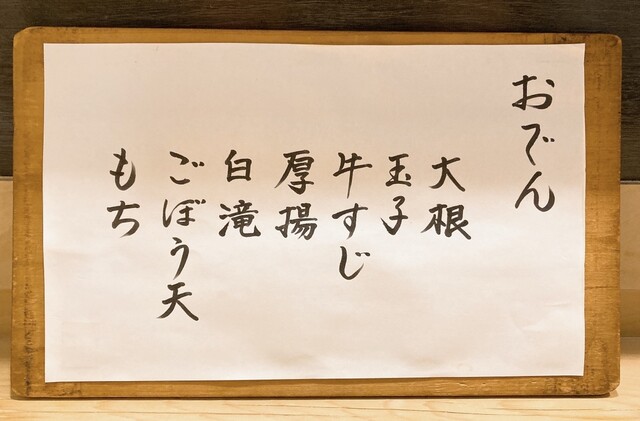 おでん
大根
玉子
牛すじ
厚揚
白滝
ごぼう天
もち